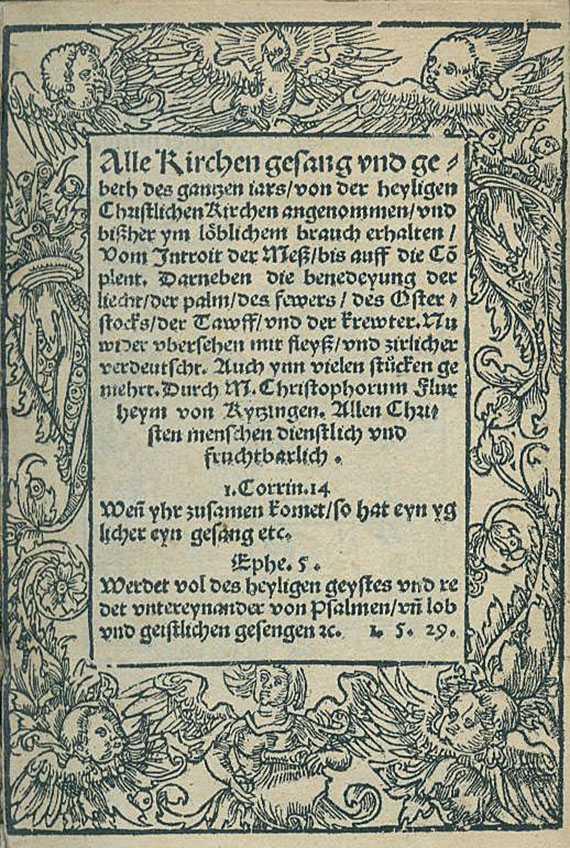 Alle Kirchen gesang vnd ge⸗
beth des gantzen iars/von der heyligen
Christlichen Kirchen angenommen/vnd
bißher ym löblichem brauch erhalten/
Vom Introit der Meß/bis auff die Cõ
plent. Darneben die benedeyung der
liecht/der palm/des fewers/des Oster⸗
stocks/der Tawff/vnd der krewter. Nu
wider vbersehen mit fleyß/vnd zirlicher
verdeutscht. Auch ynn vielen stücken ge
mehrt. Durch M. Christophorum Flur
heym von Kytzingen. Allen Chri⸗
sten menschen dienstlich vnd
fruchtbarlich.
1. Corrin. 14
Weñ yhr zusamen komet/so hat eyn yg
licher eyn gesang etc.
Ephe. 5.
Werdet vol des heyligen geystes vnd re
det vntereynander von Psalmen/vñ lob
vnd geistlichen gesengen ꝛc. 1. 5. 29.